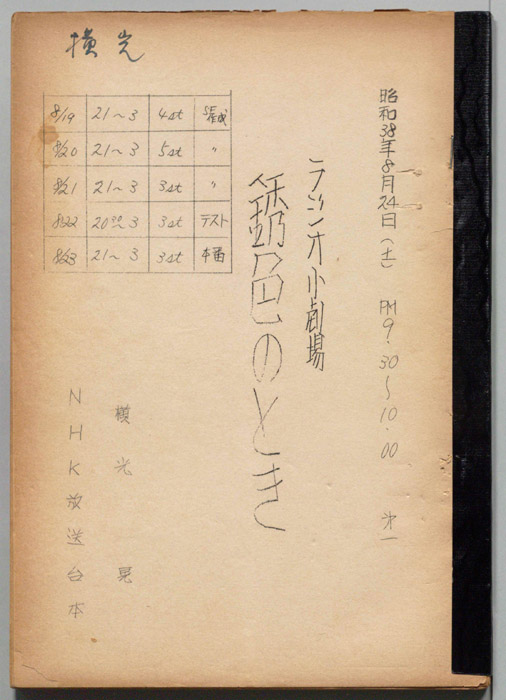 横光
昭和38年8月24日(土) PM9.30〜10.00 第一
ラジオ小劇場
銹色のとき
8/19 21〜3 4st
8/20 21〜3 5st 〃
8/21 21〜3 3st 〃
8/22 20⁰⁰〜3 3st テスト
8/23 21〜3 3st 本番
横光 晃
NHK放送台本